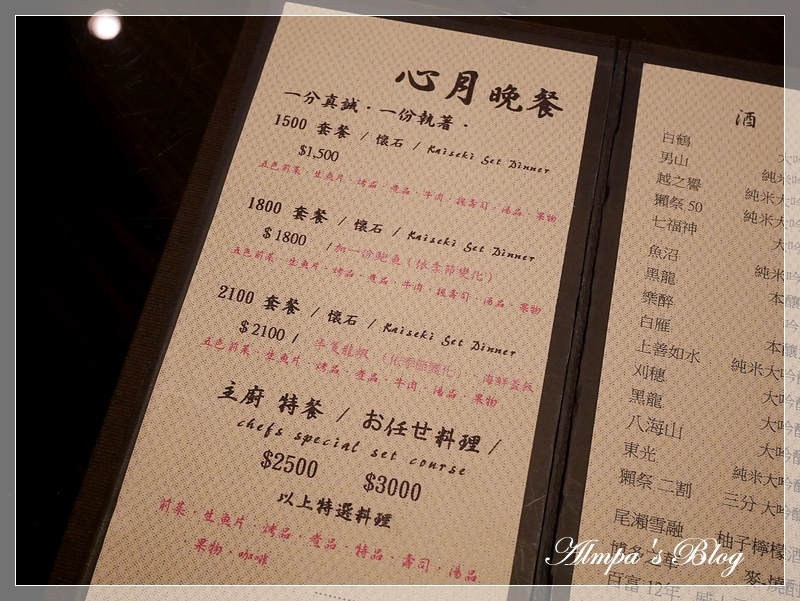 心月晚餐
一分真誠・一份執著・
1500 套餐 / 懷石 / Kaiseki Set Dinner
$1,500
五色前菜・生魚片・烤品・煮品・牛肉・握壽司・湯品・果物
1800 套餐 / 懷石 / Kaiseki Set Dinner
$1800 /加一份鮑魚(依季節變化)
五色前菜・生魚片・烤品・煮品・牛肉・握壽司・湯品・果物
2100 套餐 / 懷石 / Kaiseki Set Dinner
$2100 / 半隻龍蝦 (依季節變化) 海鮮蓋飯
五色前菜・生魚片・烤品・煮品・牛肉・湯品・果物
主廚 特餐 / お任せ料理 /
chefs special set course
$2500 $3000
以上特選料理
前菜・生魚片・烤品・煮品・特品・壽司・湯品
・果物・咖啡
酒
白鶴 大吟
男山 純米
越之譽 純米大吟
獺祭 50 純米大吟
七福神 大吟
魚沼 純米
黑龍 本釀
樂醉 吟
白雁 本釀
上善如水 純米大吟
刈穗 吟釀
黑龍 大吟釀
八海山 大吟釀
東光 純米大吟釀
獺祭 二割 三分 大吟釀
尾瀨雪融 柚子檸檬酒
麥・燒酎
百富 12年 威士
Almpa's Blog